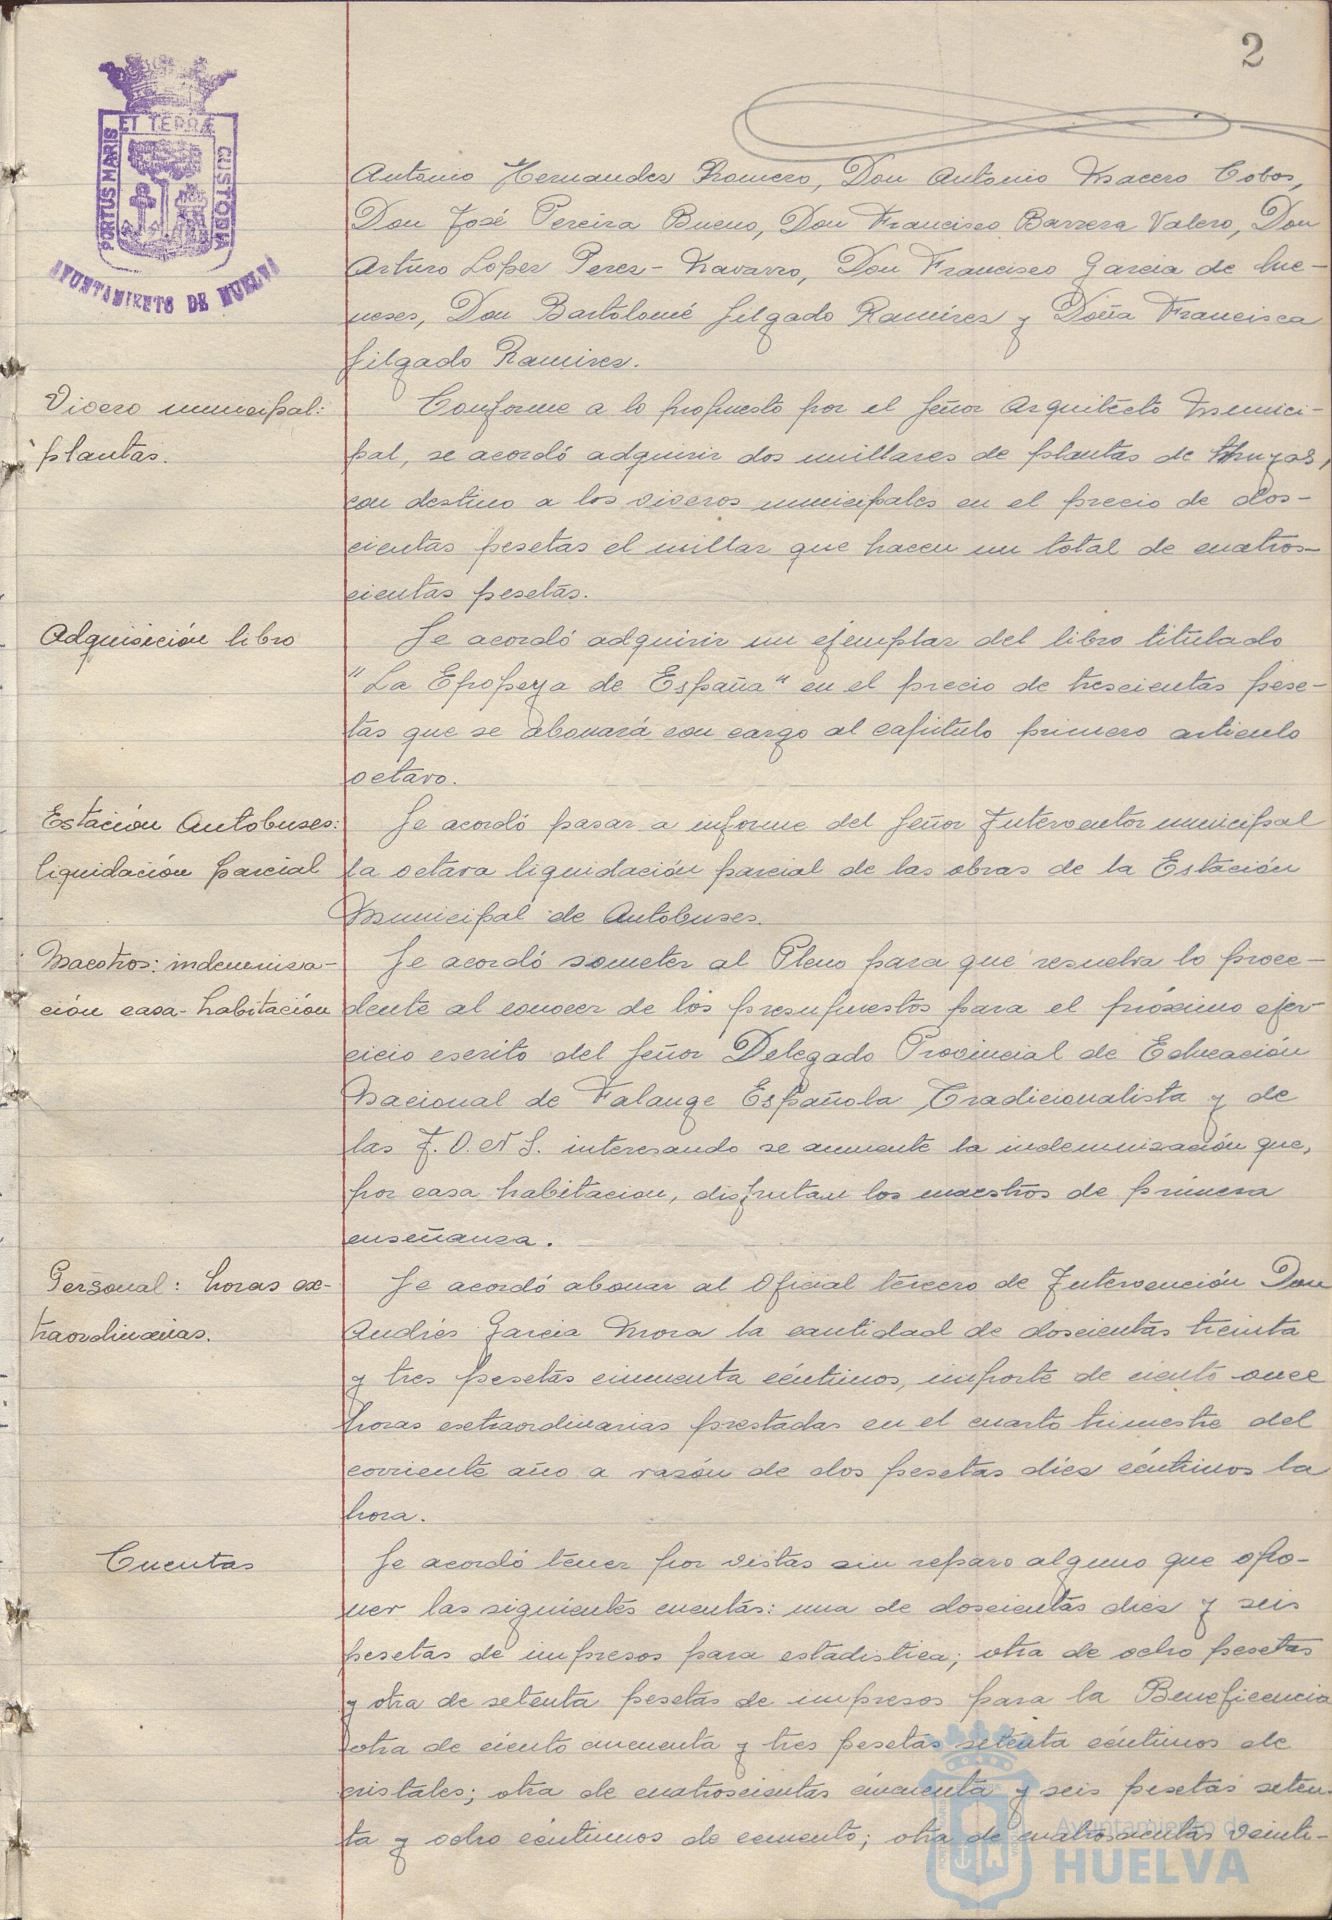 2
ET TERRÆ
PORTUS MARIS
CUSTODIA
AYUNTAMIENTO DE HUELVA
Antonio Hernandez Romero, Don Antonio Macero Cobos,
Don José Pereira Bueno, Don Francisco Barrera Valero, Don
Arturo Lopez Perez-Navarro, Don Francisco Garcia de
Don Bartolomé Gilgado Ramirez y Doña Francisca
Gilgado Ramirez.
Vivero municipal:
plantas.
Conforme a lo propuesto por el Señor Arquitecto Munici-
pal, se acordó adquirir dos millares de plantas de thuyas,
con destino a los viveros municipales en el precio de dos-
cientas pesetas el millar que hacen un total de cuatros-
cientas pesetas.
Adquisición libro
Se acordó adquirir un ejemplar del libro titulado
"La Epopeya de España" en el precio de trescientas pese-
tas que se abonará con cargo al capitulo primero articulo
octavo.
Estación Autobuses:
liquidación parcial
Se acordó pasar a informe del Señor Interventor municipal
la octava liquidación parcial de las obras de la Estación
Municipal de Autobuses.
Maestros: indemniza-
ción casa-habitación
Se acordó someter al Pleno para que resuelva lo proce-
dente al conocer de los presupuestos para el próximo ejer-
cicio escrito del Señor Delegado Provincial de Educación
Nacional de Falange Española Tradicionalista y de
las J.O.N.S. interesando se aumente la indemnización que,
por casa habitacion, disfrutan los maestros de primera
enseñanza.
Personal: horas ex-
traordinarias.
Se acordó abonar al Oficial tercero de Intervención Don
Andrés Garcia Mora la cantidad de doscientas treinta
y tres pesetas cincuenta céntimos, importe de ciento once
horas extraordinarias prestadas en el cuarto trimestre del
corriente año a razón de dos pesetas diez céntimos la
hora.
Cuentas
Se acordó tener por vistas sin reparo alguno que opo-
ner las siguientes cuentas: una de doscientas diez y seis
pesetas de impresos para estadistica; otra de ocho pesetas
y otra de setenta pesetas de impresos para la Beneficencia
otra de ciento cincuenta y tres pesetas setenta céntimos de
cristales; otra de cuatroscientas cincuenta y seis pesetas seten-
ta y ocho céntimos de cemento; otra de cuatroscientas veinti-
Ayuntamiento de
HUELVA